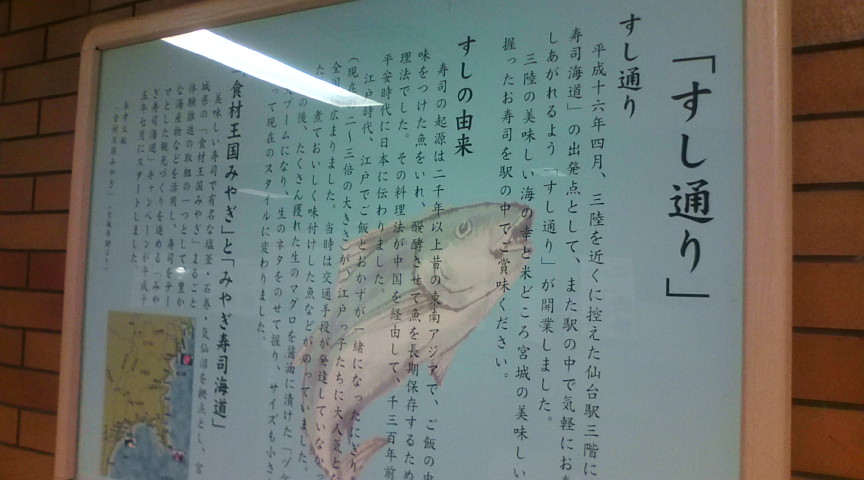 「すし通り」
すし通り
平成十六年四月、三陸を近くに控えた仙台駅三階に
寿司海道」の出発点として、また駅の中で気軽にお寿
しあがれるよう「すし通り」が開業しました。
三陸の美味しい海の幸と米どころ宮城の美味しい
握ったお寿司を駅の中でご賞味ください。
すしの由来
寿司の起源は二千年以上昔の東南アジアで、ご飯の中
味をつけた魚をいれ、醗酵させて魚を長期保存するため
理法でした。その料理法が中国を経由して、千三百年前
平安時代に日本に伝わりました。
江戸時代、江戸でご飯とおかずが一緒になったにぎり
(現在の二～三倍の大きさ)が江戸っ子たちに大人気と
全国に広まりました。当時は交通手段が発達していなかっ
た 煮ておいしく味付けした魚などがのっていました。
の後、たくさん獲れた生のマグロを醤油に漬けた「ヅケ
スブームになり、生のネタをのせて握り、サイズも小さ
って現在のスタイルに変わりました。
「食材王国みやぎ」と「みやぎ寿司海道」
美味しい寿司で有名な塩釜・石巻・気仙沼を拠点とし、宮
城県の「食材王国みやぎ」まるごと
体験推進の取組の一つとして、豊か
な海産物などを活用し、寿司をテー
マとした観光づくりを進める「みや
ぎ寿司海道」キャンペーンが平成十
五年七月にスタートしました。